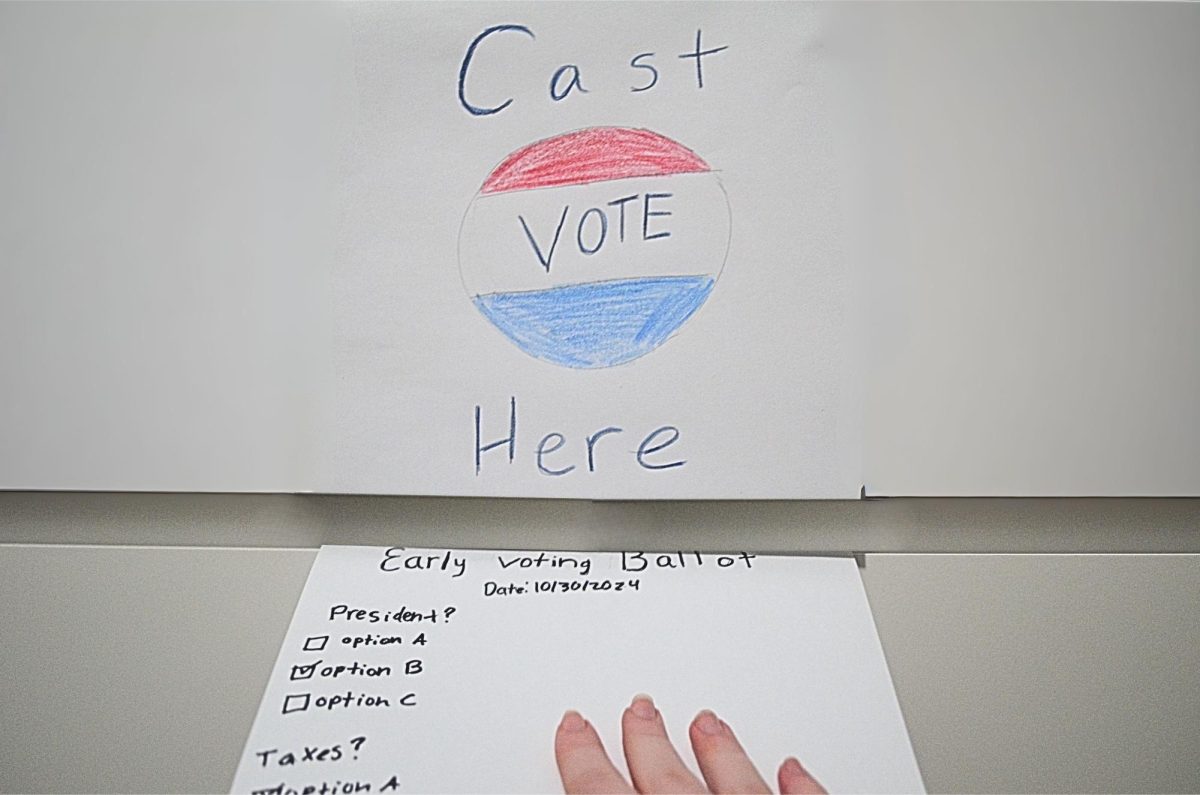 Cast
VOTE
Here
Early voting Ballot
Date: 10/30/2024
President?
option A
option B
option C
Taxes?
option A